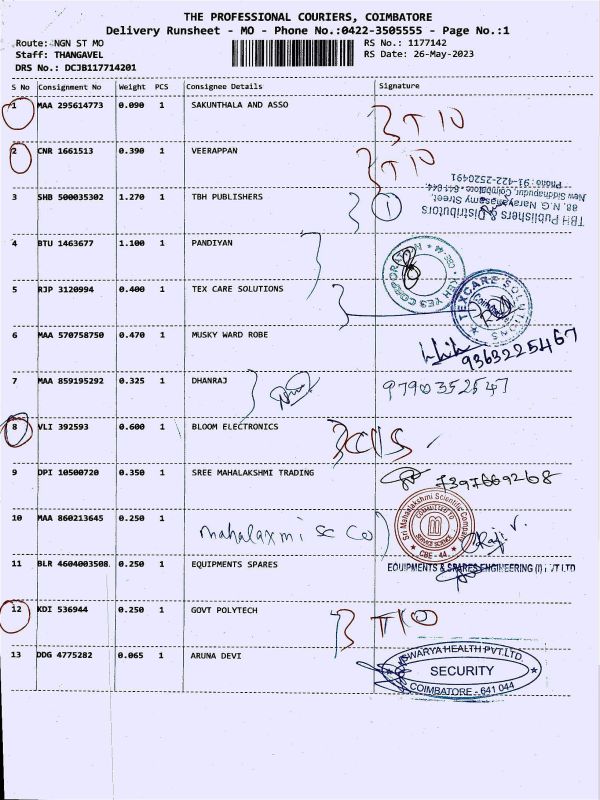 THE PROFESSIONAL COURIERS, COIMBATORE
Delivery Runsheet - MO - Phone No.:0422-3505555 - Page No.:1
Route: NGN ST MO
RS No.: 1177142
Staff: THANGAVEL
RS Date: 26-May-2023
DRS No.: DCJB117714201
S No Consignment No Weight PCS Consignee Details Signature
1 MAA 295614773 0.090 1 SAKUNTHALA AND ASSO
T 10
2 CNR 1661513 0.390 1 VEERAPPAN
T 10
3 SHB 500035302 1.270 1 TBH PUBLISHERS 1
TBH Publishers & Distributors
88, N.G. Narayanasamy Street,
New Siddhapudur, Coimbatore - 641 044.
Phone : 91-422-2520491
4 BTU 1463677 1.100 1 PANDIYAN
YES CORPORATION CBE-44
5 RJP 3120994 0.400 1 TEX CARE SOLUTIONS
TEXCARE SOLUTIONS
6 MAA 570758750 0.470 1 MUSKY WARD ROBE
9363225467
7 MAA 859195292 0.325 1 DHANRAJ
9790352547
8 VLI 392593 0.600 1 BLOOM ELECTRONICS
9 DPI 10500720 0.350 1 SREE MAHALAKSHMI TRADING
7397669268
10 MAA 860213645 0.250 1 mahalaxmi sc co
Sri Mahalakshmi Scientific Company
COMMITTED TO
SERVICE SCIENCE
CBE - 44
11 BLR 4604003508. 0.250 1 EQUIPMENTS SPARES
EQUIPMENTS & SPARES ENGINEERING (I) LTD
12 KDI 536944 0.250 1 GOVT POLYTECH
T10
13 DDG 4775282 0.065 1 ARUNA DEVI
HEALTH PVT.LTD.
SECURITY
COIMBATORE - 641 044